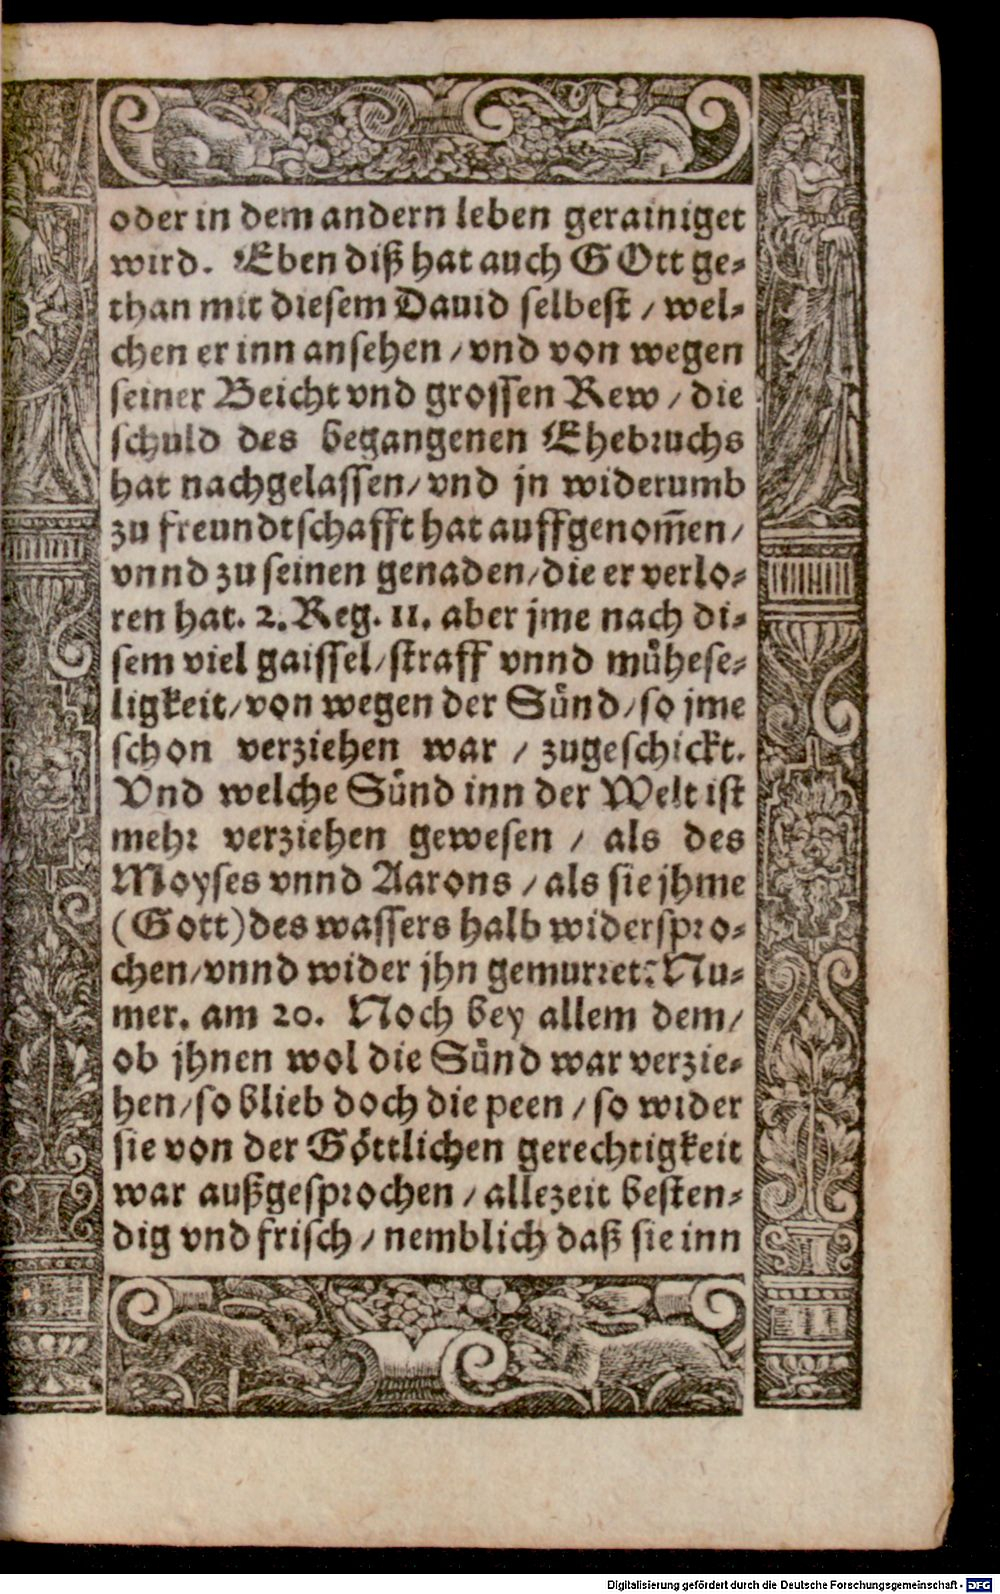 oder in dem andern leben gerainiget
wird. Eben diß hat auch GOtt ge-
than mit diesem Dauid selbest / wel-
chen er inn ansehen / vnd von wegen
seiner Beicht vnd grossen Rew / die
schuld des begangenen Ehebruchs
hat nachgelassen / vnd jn widerumb
zu freundtschafft hat auffgenom̃en /
vnnd zu seinen genaden / die er verlo-
ren hat. 2. Reg. 11. aber jme nach di-
sem viel gaissel / straff vnnd mühese-
ligkeit / von wegen der Sünd / so jme
schon verziehen war / zugeschickt.
Vnd welche Sünd inn der Welt ist
mehr verziehen gewesen / als des
Moyses vnnd Aarons / als sie jhme
(Gott) des wassers halb widerspro-
chen / vnnd wider jhn gemurret? Nu-
mer. am 20. Noch bey allem dem /
ob jhnen wol die Sünd war verzie-
hen / so blieb doch die peen / so wider
sie von der Göttlichen gerechtigkeit
war außgesprochen / allezeit besten-
dig vnd frisch / nemblich daß sie inn
Digitalisierung gefördert durch die Deutsche Forschungsgemeinschaft - DFG